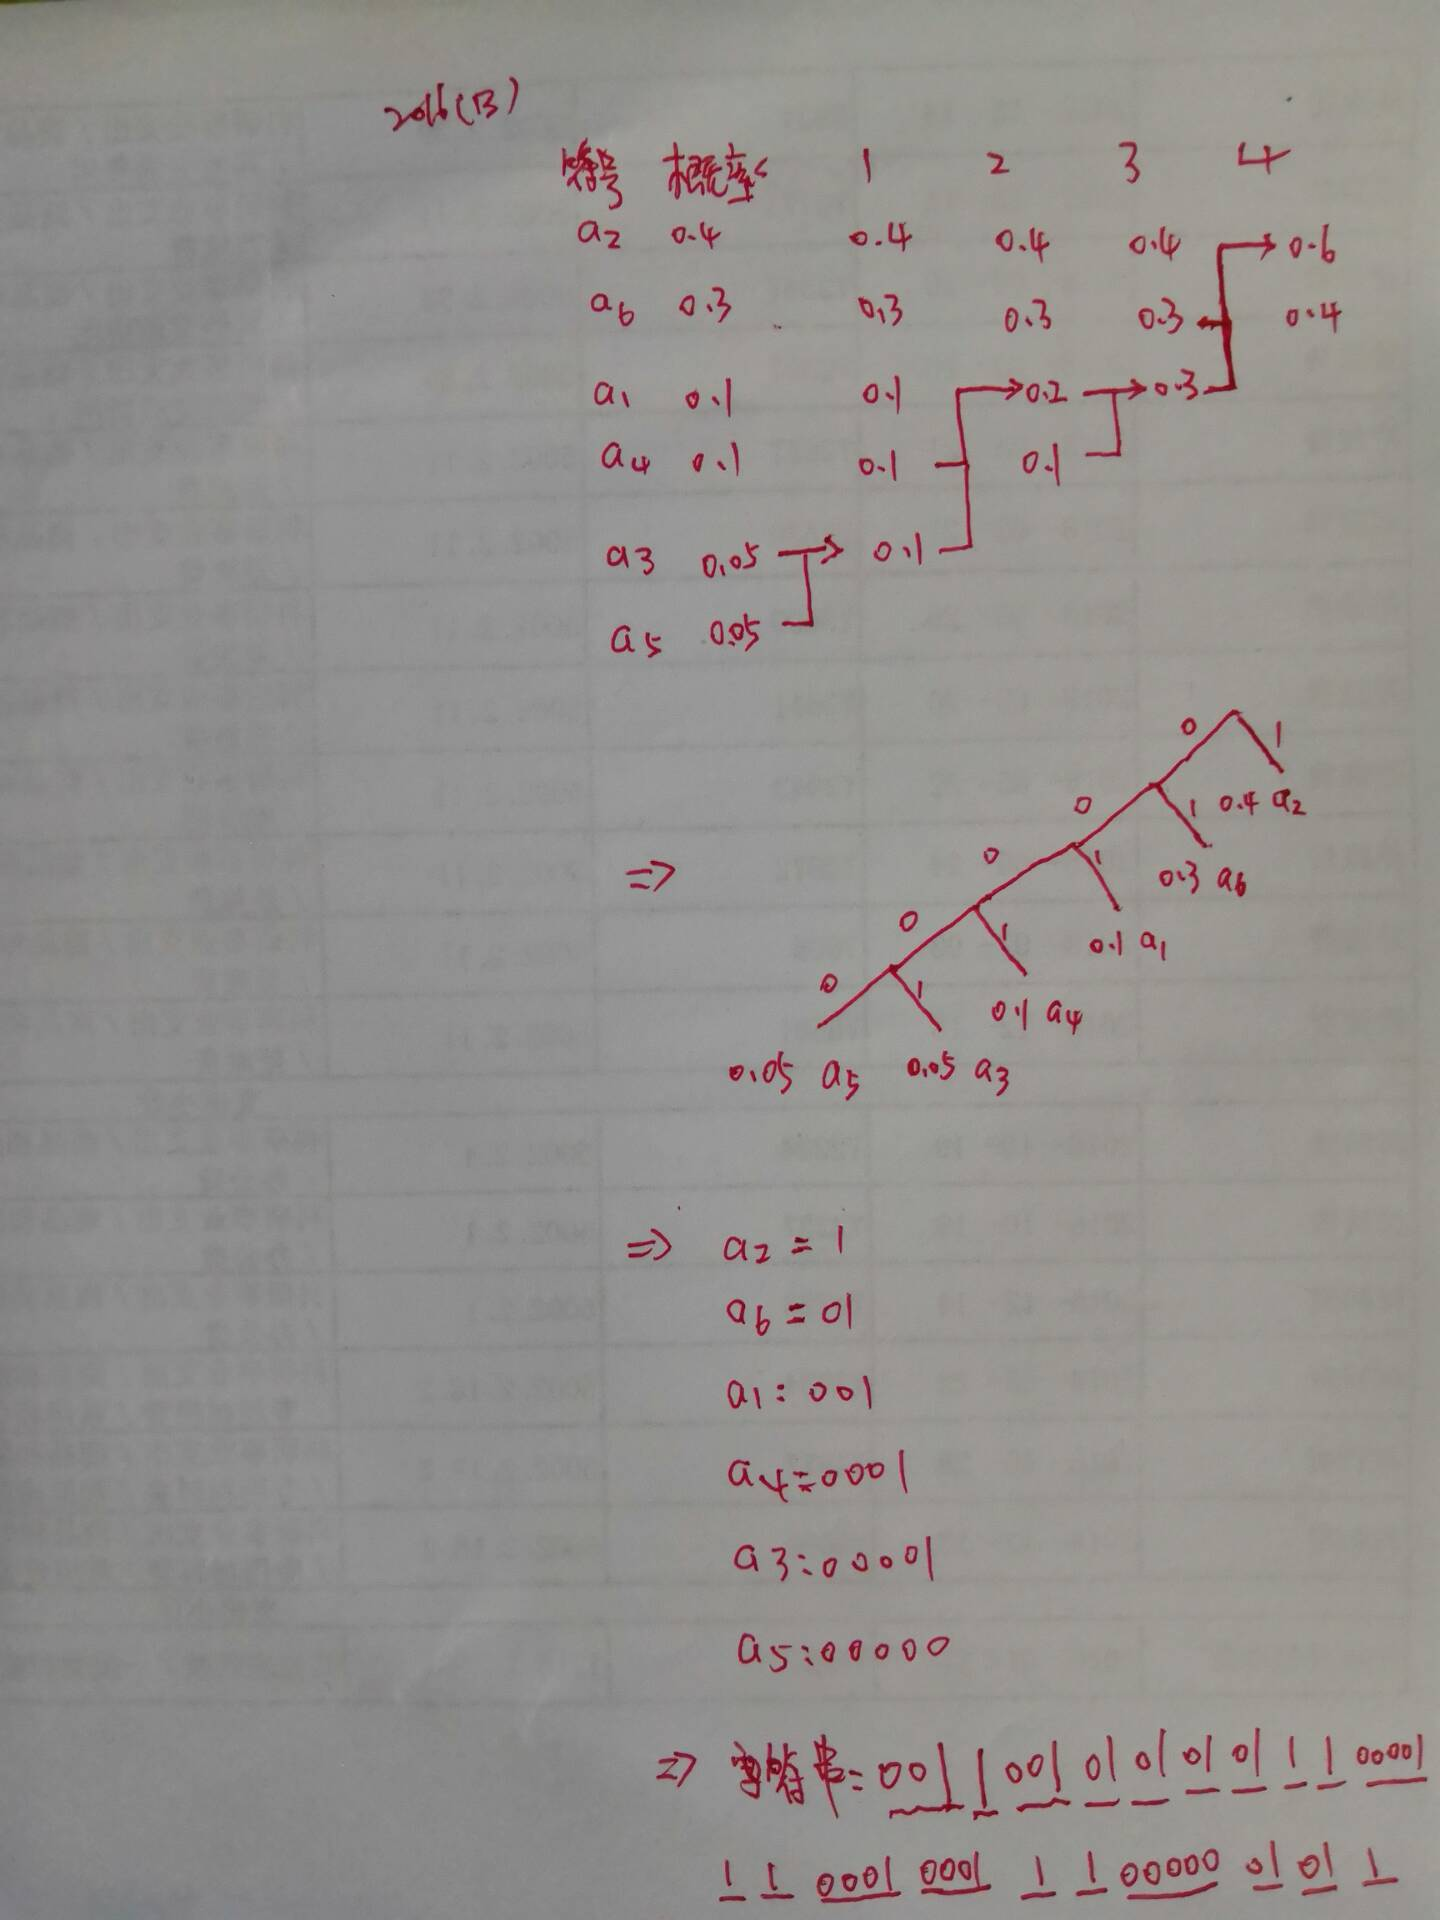 2016(B)
符号 概率 1 2 3 4
a2 0.4 0.4 0.4 0.4 0.6
a6 0.3 0.3 0.3 0.3 0.4
a1 0.1 0.1 0.2 0.3
a4 0.1 0.1 0.1
a3 0.05 0.1
a5 0.05
0 1
0 1 0.4 a2
⇒ 0 1 0.3 a6
0 1 0.1 a1
0 1 0.1 a4
0.05 a5 0.05 a3
⇒ a2 = 1
a6 = 01
a1 : 001
a4 = 0001
a3 : 00001
a5 : 00000
⇒ 字符串 = 001 1 001 01 01 01 01 1 1 00001
1 1 0001 0001 1 1 00000 01 01 1